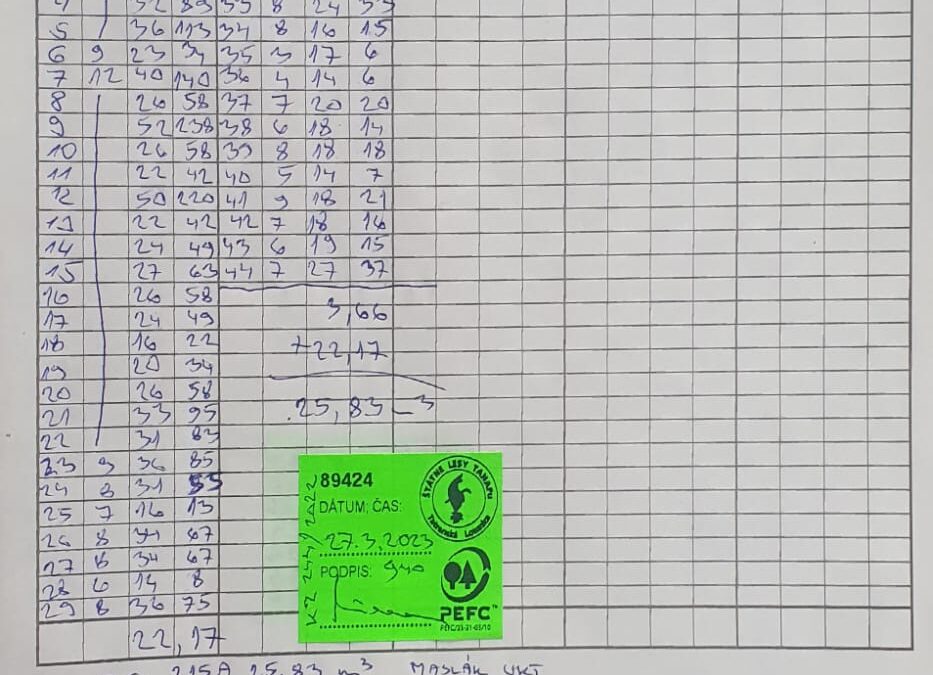 32 89 33 8 24 33
5 36 113 34 8 16 15
6 9 23 34 35 3 17 6
7 12 40 140 36 4 14 6
8 26 58 37 7 20 20
9 52 238 38 6 18 14
10 26 58 39 8 18 18
11 22 42 40 5 14 7
12 50 220 41 9 18 21
13 22 42 42 7 18 16
14 24 49 43 6 19 15
15 27 63 44 7 27 37
16 26 58
3,66
17 24 49
18 16 22
+22,17
19 20 34
20 26 58
21 33 95
25,83 m3
22 31 83
23 9 36 85
24 8 31 55
25 7 16 13
26 8 34 67
27 8 34 67
28 6 14 8
29 8 36 75
22,17
89424
ŠTÁTNE LESY TANAPU
Tatranská Lomnica
DÁTUM; ČAS:
27.3.2023
PODPIS: 940
PEFC™
PEFC/23-21-03/10
215A 25,83 m3 MASLÁK VKT